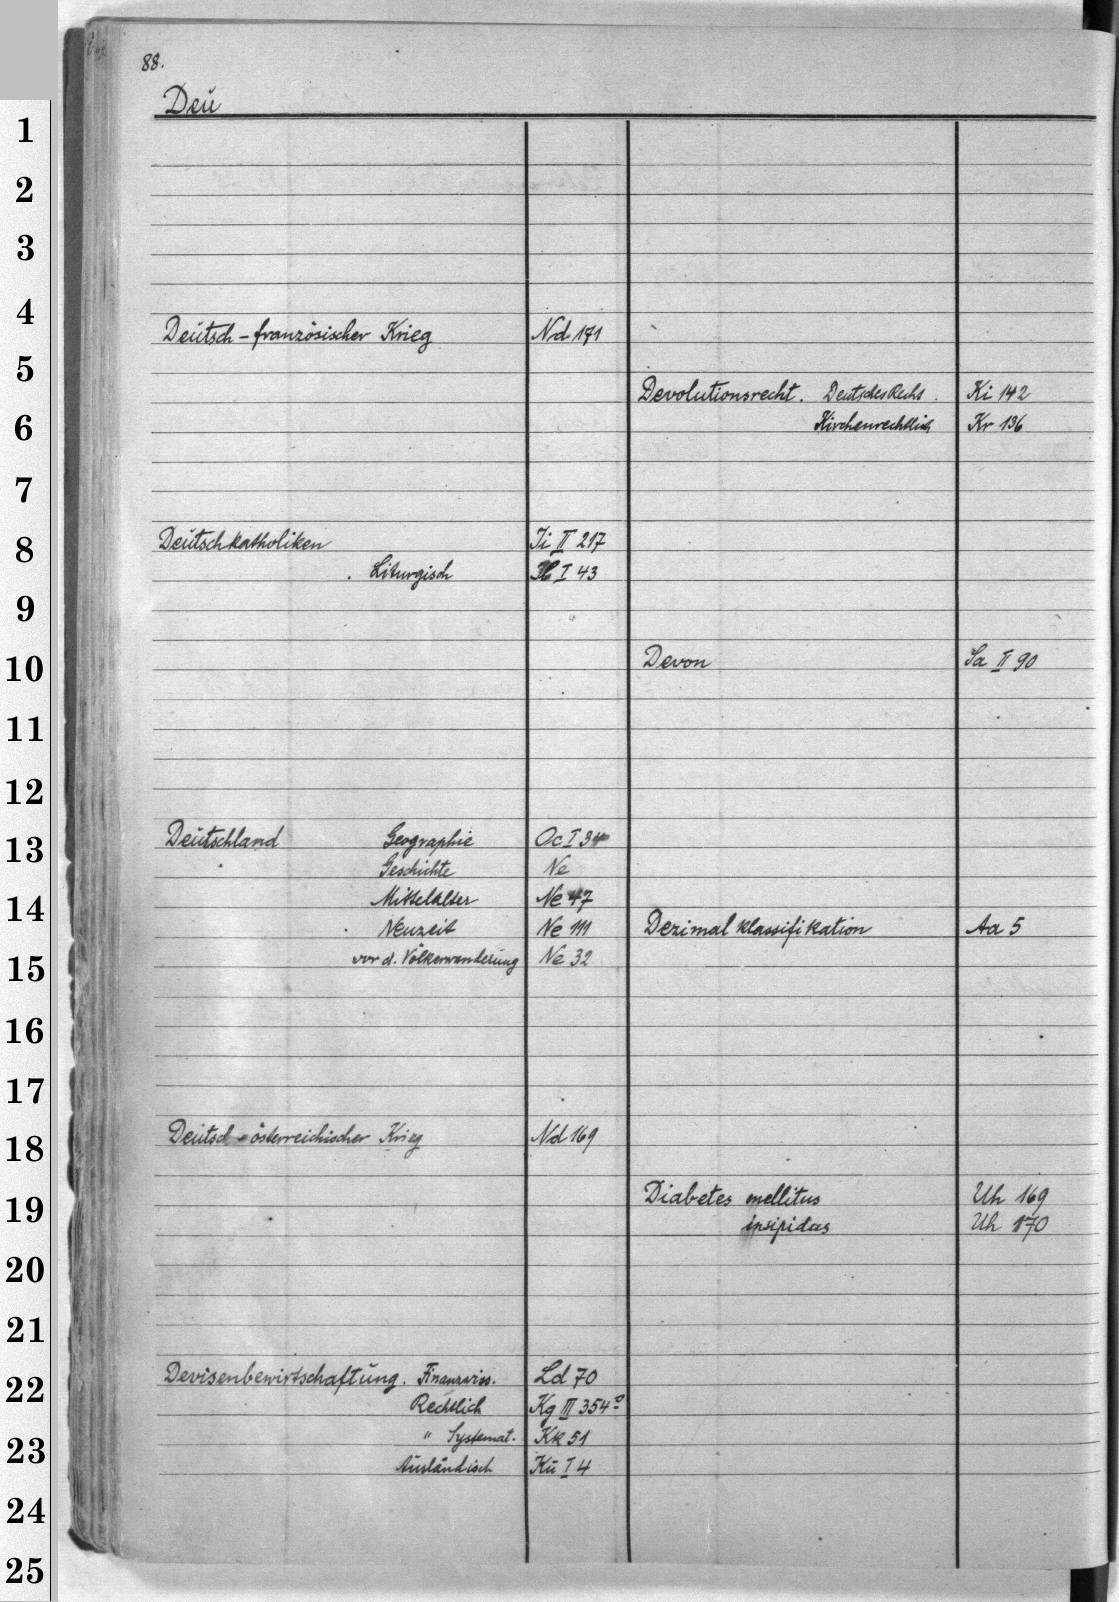 88.
Deu
Deutsch-französischer Krieg Nd 171
Deutschkatholiken Ii II 217
Liturgisch I 43
Deutschland Geographie Oc I 34
Geschichte Ne
Mittelalter Ne 47
Neuzeit Ne 111
vor d. Völkerwanderung Ne 32
Deutsch-österreichischer Krieg Nd 169
Devisenbewirtschaftung. Finanzwiss. Ld 70
Rechtlich Kg III 354
" Systemat. Kk 51
Ausländisch Ku I 4
Devolutionsrecht. Deutsches Recht. Ki 142
Kirchenrechtlich Kr 136
Devon Sa II 90
Dezimalklassifikation Aa 5
Diabetes mellitus Uh 169
insipidus Uh 170
1
2
3
4
5
6
7
8
9
10
11
12
13
14
15
16
17
18
19
20
21
22
23
24
25